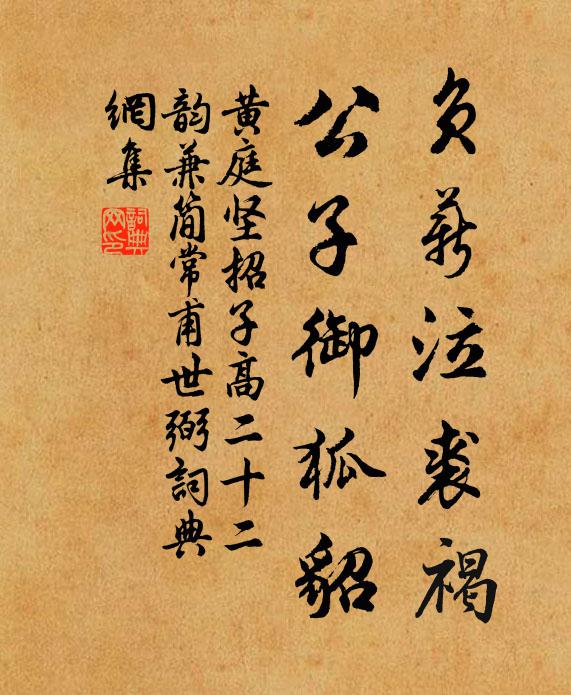 负薪泣裘褐
公子御狐貂
黄庭坚招子高二十二
韵兼简常甫世弼詞典
網集
詞典網印